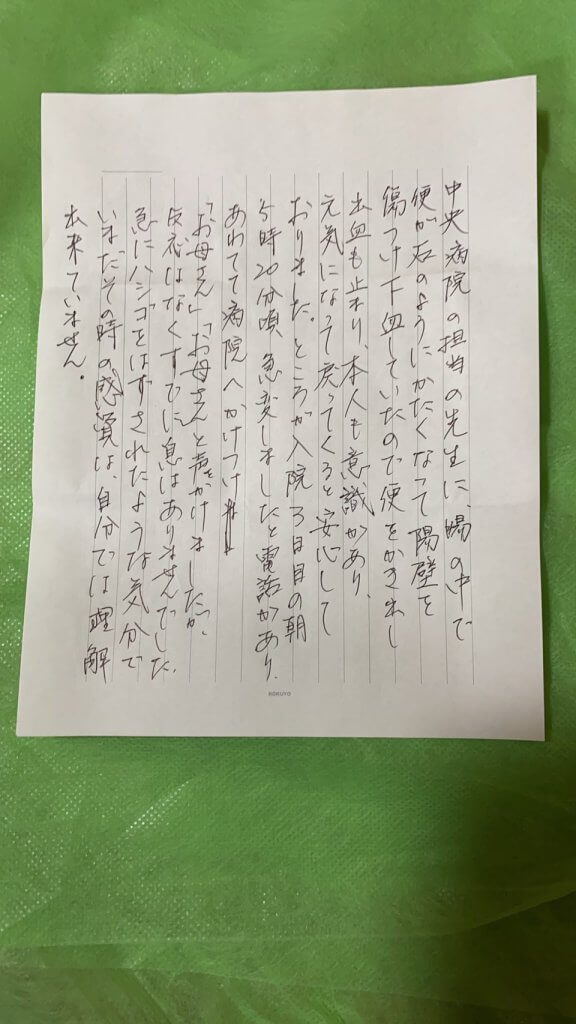 中央病院の担当の先生に、腸の中で
便が石のようにかたくなって腸壁を
傷つけ下血していたので便をかき出し
出血も止まり、本人も意識があり、
元気になって戻ってくると安心して
おりました。ところが入院3日目の朝
5時20分頃、急変しましたと電話があり、
あわてて病院へかけつけ
「お母さん」「お母さんと声をかけましたが、
反応はなくすでに息はありませんでした。
急にハシゴをはずされたような気分で
いまだその時の感覚は、自分では理解
出来ていません。
KOKUYO